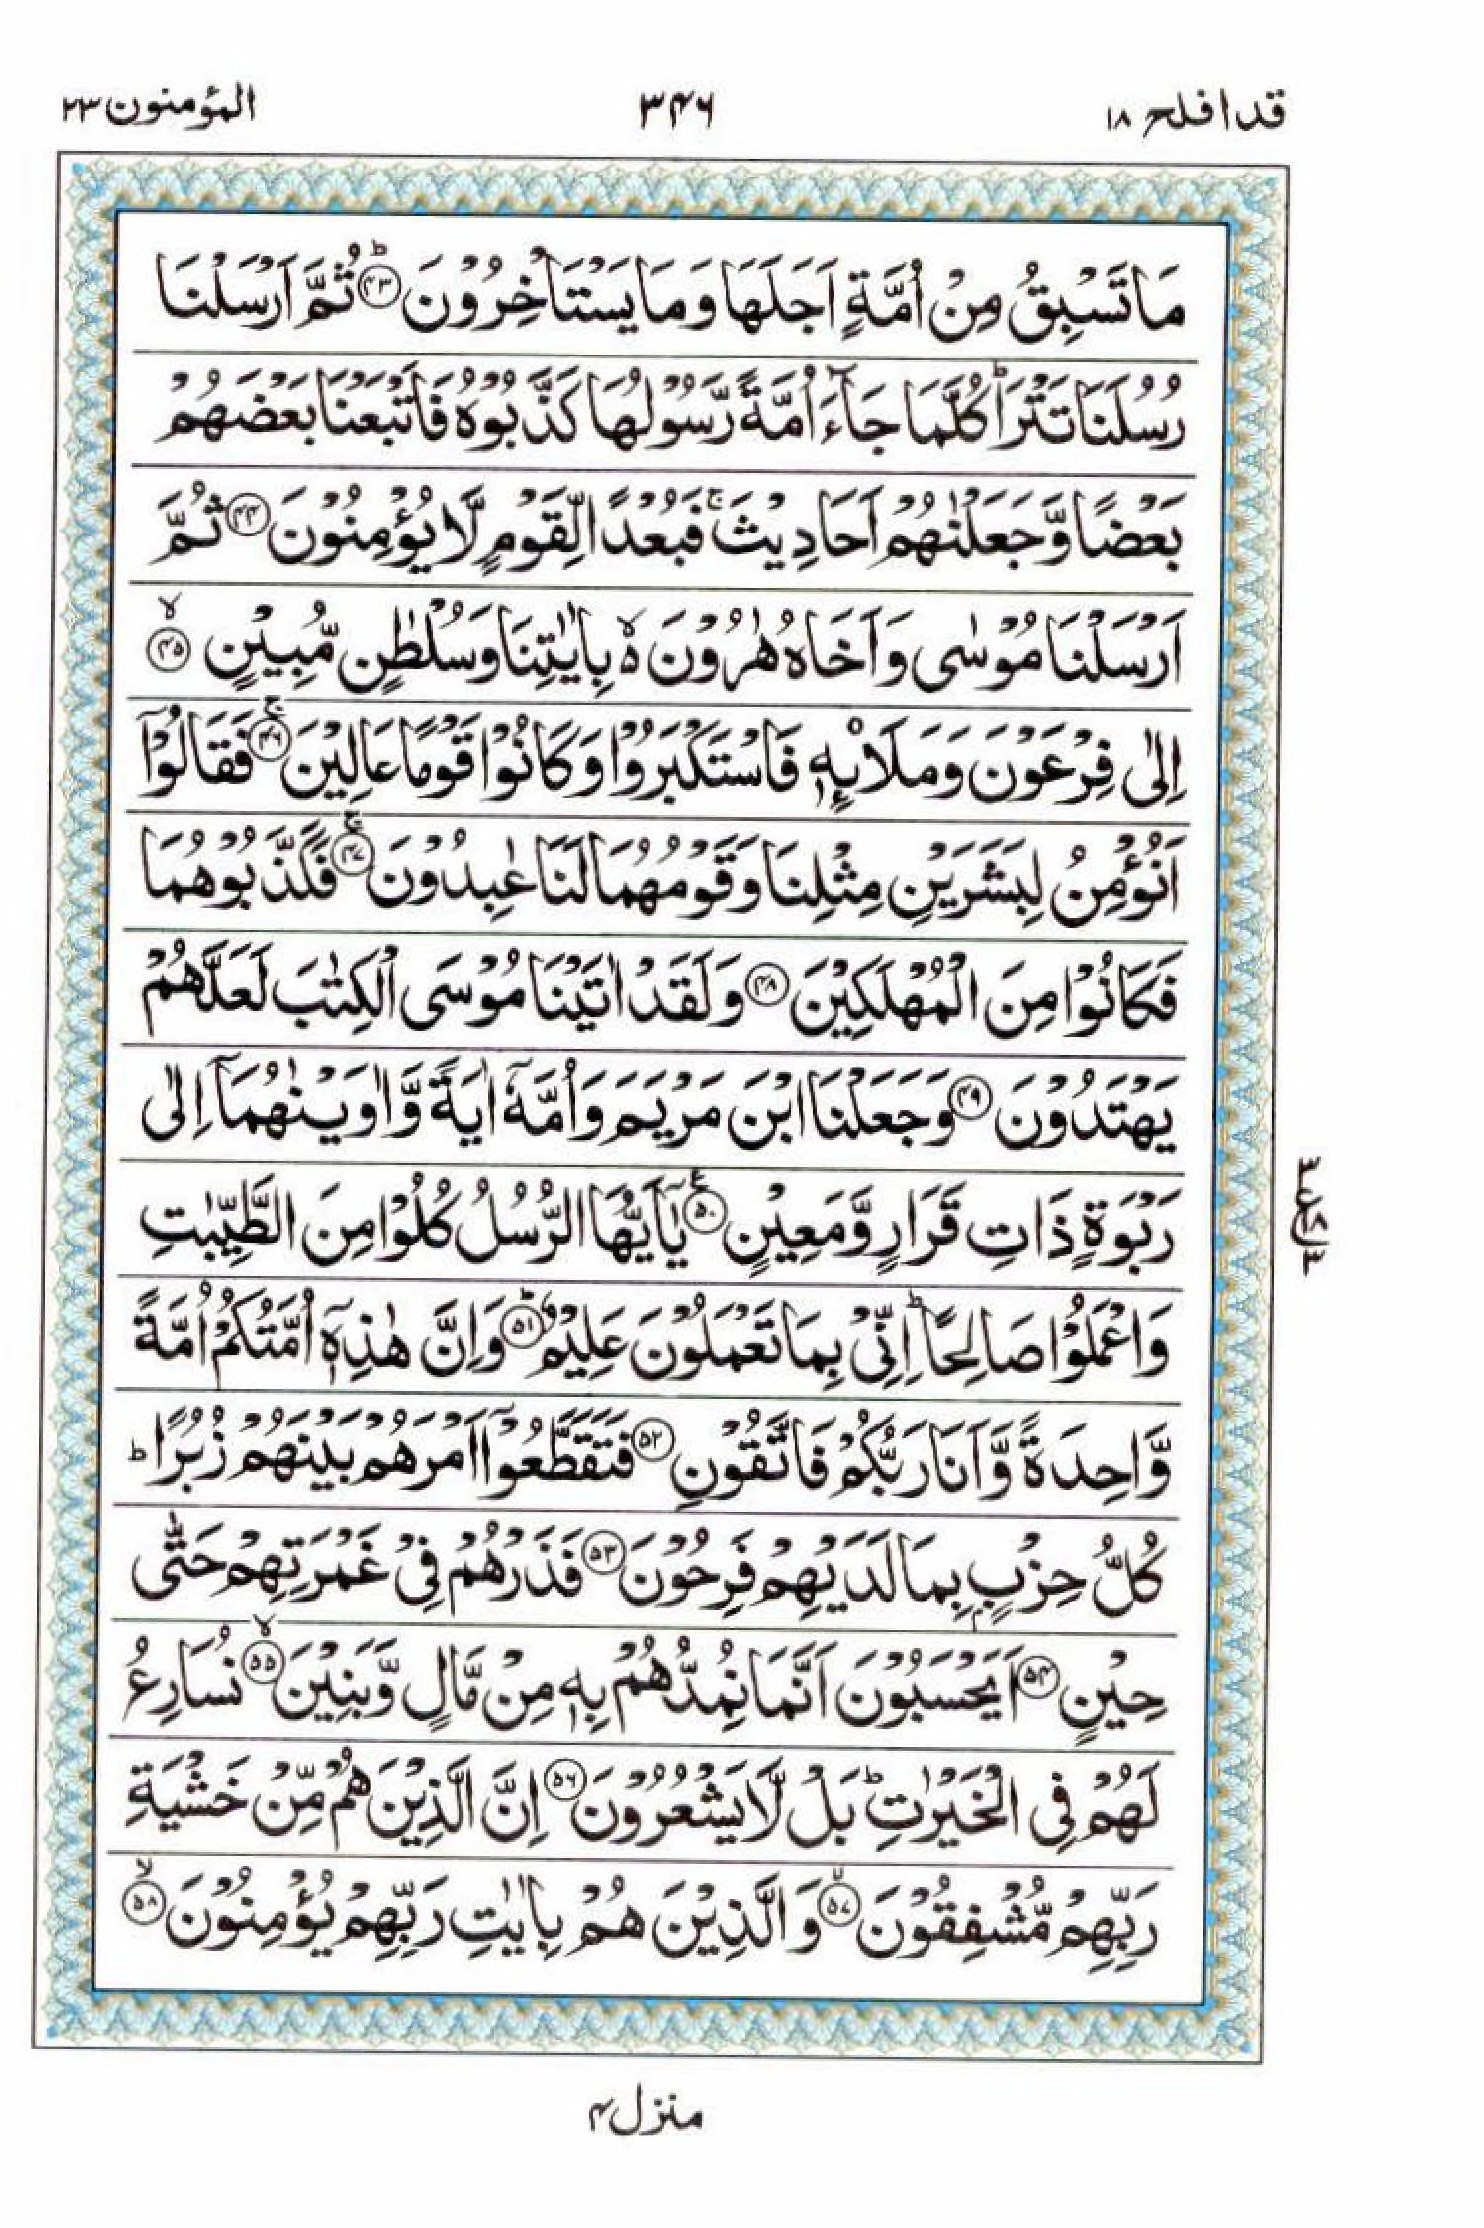 قد افلح ١٨
٣٤٦
المؤمنون ٢٣
مَا تَسْبِقُ مِنْ اُمَّةٍ اَجَلَهَا وَ مَا يَسْتَاْخِرُوْنَ ؕ﴿۴۳﴾ ثُمَّ اَرْسَلْنَا
رُسُلَنَا تَتْرَا ؕ كُلَّمَا جَآءَ اُمَّةً رَّسُوْلُهَا كَذَّبُوْهُ فَاَتْبَعْنَا بَعْضَهُمْ
بَعْضًا وَّ جَعَلْنٰهُمْ اَحَادِيْثَ ۚ فَبُعْدًا لِّقَوْمٍ لَّا يُؤْمِنُوْنَ ﴿۴۴﴾ ثُمَّ
اَرْسَلْنَا مُوْسٰى وَ اَخَاهُ هٰرُوْنَ ۙ۬ بِاٰيٰتِنَا وَ سُلْطٰنٍ مُّبِيْنٍ ۙ﴿۴۵﴾
اِلٰى فِرْعَوْنَ وَ مَلَا۠ئِهٖ فَاسْتَكْبَرُوْا وَ كَانُوْا قَوْمًا عَالِيْنَ ۚ﴿۴۶﴾ فَقَالُوْۤا
اَنُؤْمِنُ لِبَشَرَيْنِ مِثْلِنَا وَ قَوْمُهُمَا لَنَا عٰبِدُوْنَ ۚ﴿۴۷﴾ فَكَذَّبُوْهُمَا
فَكَانُوْا مِنَ الْمُهْلَكِيْنَ ﴿۴۸﴾ وَ لَقَدْ اٰتَيْنَا مُوْسَى الْكِتٰبَ لَعَلَّهُمْ
يَهْتَدُوْنَ ﴿۴۹﴾ وَ جَعَلْنَا ابْنَ مَرْيَمَ وَ اُمَّهٗۤ اٰيَةً وَّ اٰوَيْنٰهُمَاۤ اِلٰى
رَبْوَةٍ ذَاتِ قَرَارٍ وَّ مَعِيْنٍ ﴿۵۰﴾ يٰۤاَيُّهَا الرُّسُلُ كُلُوْا مِنَ الطَّيِّبٰتِ
وَ اعْمَلُوْا صَالِحًا ؕ اِنِّيْ بِمَا تَعْمَلُوْنَ عَلِيْمٌ ؕ﴿۵۱﴾ وَ اِنَّ هٰذِهٖۤ اُمَّتُكُمْ اُمَّةً
وَّاحِدَةً وَّ اَنَا رَبُّكُمْ فَاتَّقُوْنِ ﴿۵۲﴾ فَتَقَطَّعُوْۤا اَمْرَهُمْ بَيْنَهُمْ زُبُرًا ؕ
كُلُّ حِزْبٍۭ بِمَا لَدَيْهِمْ فَرِحُوْنَ ﴿۵۳﴾ فَذَرْهُمْ فِيْ غَمْرَتِهِمْ حَتّٰى
حِيْنٍ ﴿۵۴﴾ اَيَحْسَبُوْنَ اَنَّمَا نُمِدُّهُمْ بِهٖ مِنْ مَّالٍ وَّ بَنِيْنَ ۙ﴿۵۵﴾ نُسَارِعُ
لَهُمْ فِي الْخَيْرٰتِ ؕ بَلْ لَّا يَشْعُرُوْنَ ﴿۵۶﴾ اِنَّ الَّذِيْنَ هُمْ مِّنْ خَشْيَةِ
رَبِّهِمْ مُّشْفِقُوْنَ ۙ﴿۵۷﴾ وَ الَّذِيْنَ هُمْ بِاٰيٰتِ رَبِّهِمْ يُؤْمِنُوْنَ ۙ﴿۵۸﴾
منزل ۴